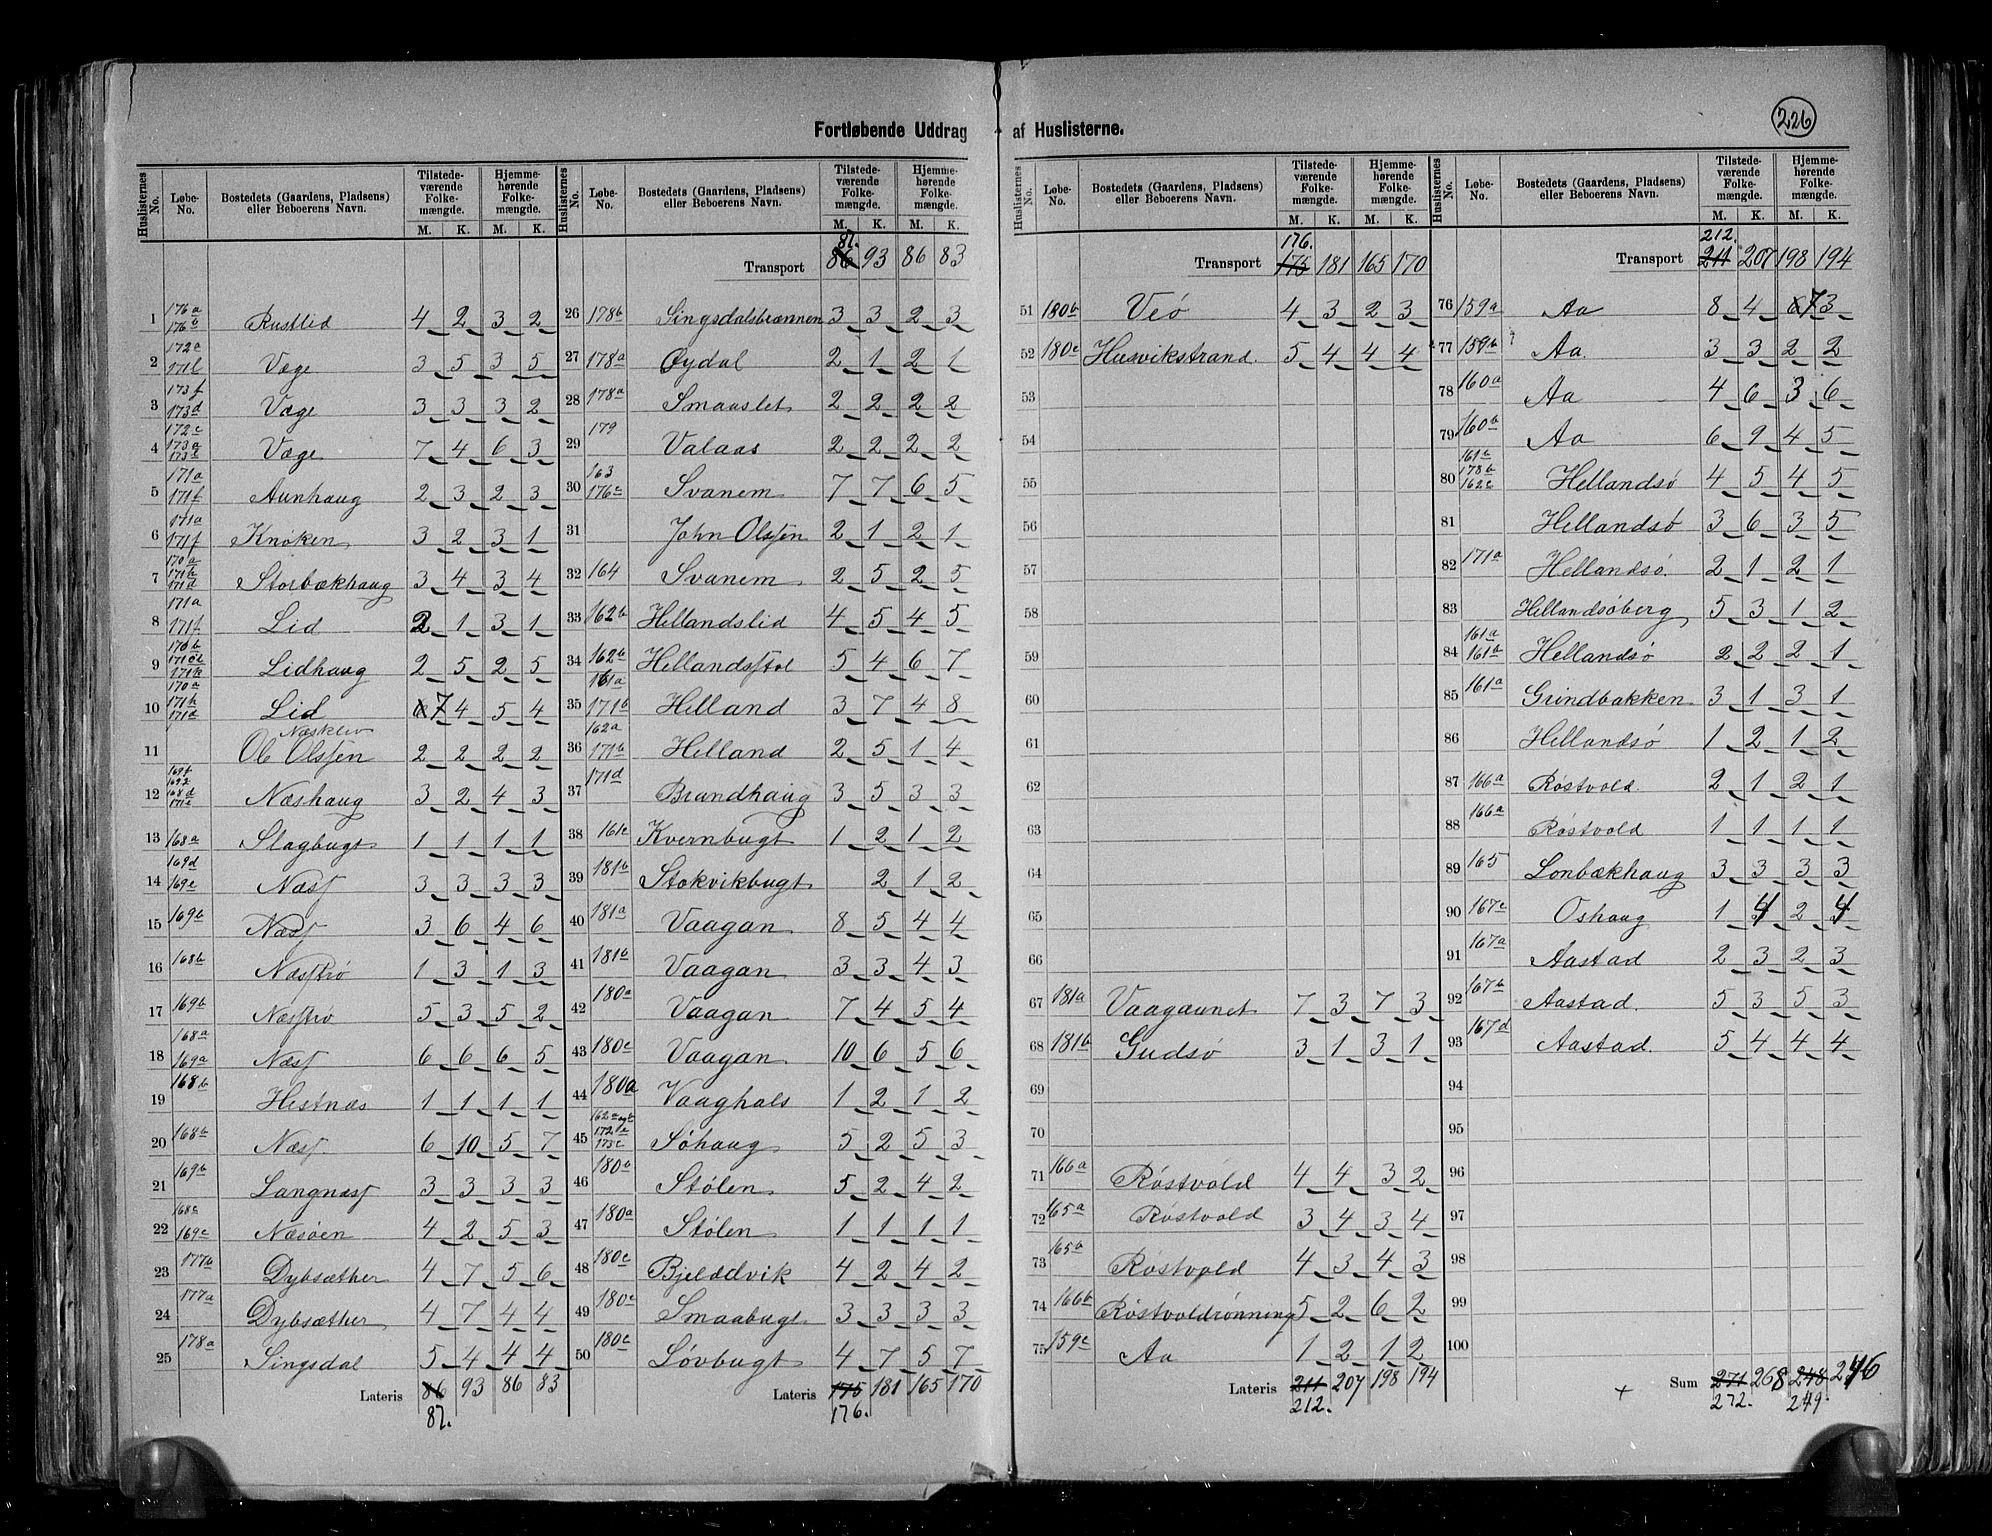 226
Fortløbende Uddrag af Huslisterne.
Huslisternes No. Løbe-No. Bostedets (Gaardens, Pladsens) eller Beboerens Navn. Tilstedeværende Folkemængde. Hjemmehørende Folkemængde.
M. K. M. K.
1 176a 176b Rustlid 4 2 3 2
2 172a 171b Væge 3 5 3 5
3 173f 173d Væge 3 3 3 2
4 172c 173a 173e Væge 7 4 6 3
5 171a 171f Aunhaug 2 3 2 3
6 171a 171f Knøken 3 2 3 1
7 170a 171h 171d Storbækhaug 3 4 3 4
8 171a 171f Lid 2 1 3 1
9 170b Lidhaug 2 5 2 5
10 170a 171h 171d Lid 7 4 5 4
11 Næsklev Ole Olsen 2 2 2 2
12 168d 171e Næshaug 3 2 4 3
13 168a Slagbugt 1 1 1 1
14 169d 169e Næss 3 3 3 3
15 169b Næss 3 6 4 6
16 168b Næsstrø 1 3 1 3
17 169b Næsstrø 5 3 5 2
18 168a 169a Næss 6 6 6 5
19 168b Hestnæs 1 1 1 1
20 168b Næss. 6 10 5 7
21 169b Langnæss 3 3 3 3
22 168c 169c Næsøen 4 2 5 3
23 177b Dybsæther 4 7 5 6
24 177a Dybsæther 4 7 4 4
25 178a Singsdal 5 4 4 4
Lateris 86 93 86 83
87.
Huslisternes No. Løbe-No. Bostedets (Gaardens, Pladsens) eller Beboerens Navn. Tilstedeværende Folkemængde. Hjemmehørende Folkemængde.
M. K. M. K.
87.
Transport 86 93 86 83
26 178b Singsdalsbrænnen 3 3 2 3
27 178a Øydal 2 1 2 1
28 178a Smaaslet 2 2 2 2
29 179 Valaas 2 2 2 2
30 163 176c Svanem 7 7 6 5
31 John Olsen 2 1 2 1
32 164 Svanem 2 5 2 5
33 162b Hellandslid 4 5 4 5
34 162b Hellandsstol 5 4 6 7
35 161a 171b Helland 3 7 4 8
36 162a 171b Helland 2 5 1 4
37 171d Brandhaug 3 5 3 3
38 161c Kvernbugt 1 2 1 2
39 181b Stokvikbugt 2 1 2
40 181a Vaagan 8 5 4 4
41 181b Vaagan 3 3 4 3
42 180a Vaagan 7 4 5 4
43 180c Vaagan 10 6 5 6
44 180a Vaaghals 1 2 1 2
45 173c Søhaug 5 2 5 3
46 180b Stølen 5 2 4 2
47 180a Stølen 1 1 1 1
48 180c Bjelddvik 4 2 4 2
49 180c Smaabugt 3 3 3 3
50 180c Løvbugt 4 7 5 7
Lateris 175 181 165 170
176.
Huslisternes No. Løbe-No. Bostedets (Gaardens, Pladsens) eller Beboerens Navn. Tilstedeværende Folkemængde. Hjemmehørende Folkemængde.
M. K. M. K.
176.
Transport 175 181 165 170
51 180b Veø 4 3 2 3
52 180c Husvikstrand 5 4 4 4
53
54
55
56
57
58
59
60
61
62
63
64
65
66
67 181a Vaagaunet 7 3 7 3
68 181b Gudsø 3 1 3 1
69
70
71 166a Røstvold 4 4 3 2
72 165a Røstvold 3 4 3 4
73 165b Røstvold 4 3 4 3
74 166b Røstvoldrønning 5 2 6 2
75 159c Aa 1 2 1 2
Lateris 211 207 198 194
212.
Huslisternes No. Løbe-No. Bostedets (Gaardens, Pladsens) eller Beboerens Navn. Tilstedeværende Folkemængde. Hjemmehørende Folkemængde.
M. K. M. K.
212.
Transport 211 207 198 194
76 159a Aa 8 4 7 3
77 159b Aa. 3 3 2 2
78 160a Aa 4 6 3 6
79 160b Aa 6 9 4 5
80 161c 178b 162c Hellandsø 4 5 4 5
81 Hellandsø 3 6 3 5
82 171a Hellandsø. 2 1 2 1
83 Hellandsøberg 5 3 1 2
84 161a 161b Hellandsø 2 2 2 1
85 161a Grindbakken 3 1 3 1
86 Hellandsø 1 2 1 2
87 166a Røstvold. 2 1 2 1
88 166a Røstvold 1 1 1 1
89 165 Lonbækhaug 3 3 3 3
90 167c Oshaug 1 4 2 4
91 167a Aastad 2 3 2 3
92 167b Aastad. 5 3 5 3
93 167d Aastad. 5 4 4 4
94
95
96
97
98
99
100
+ Sum 271 268 248 246
272. 249.